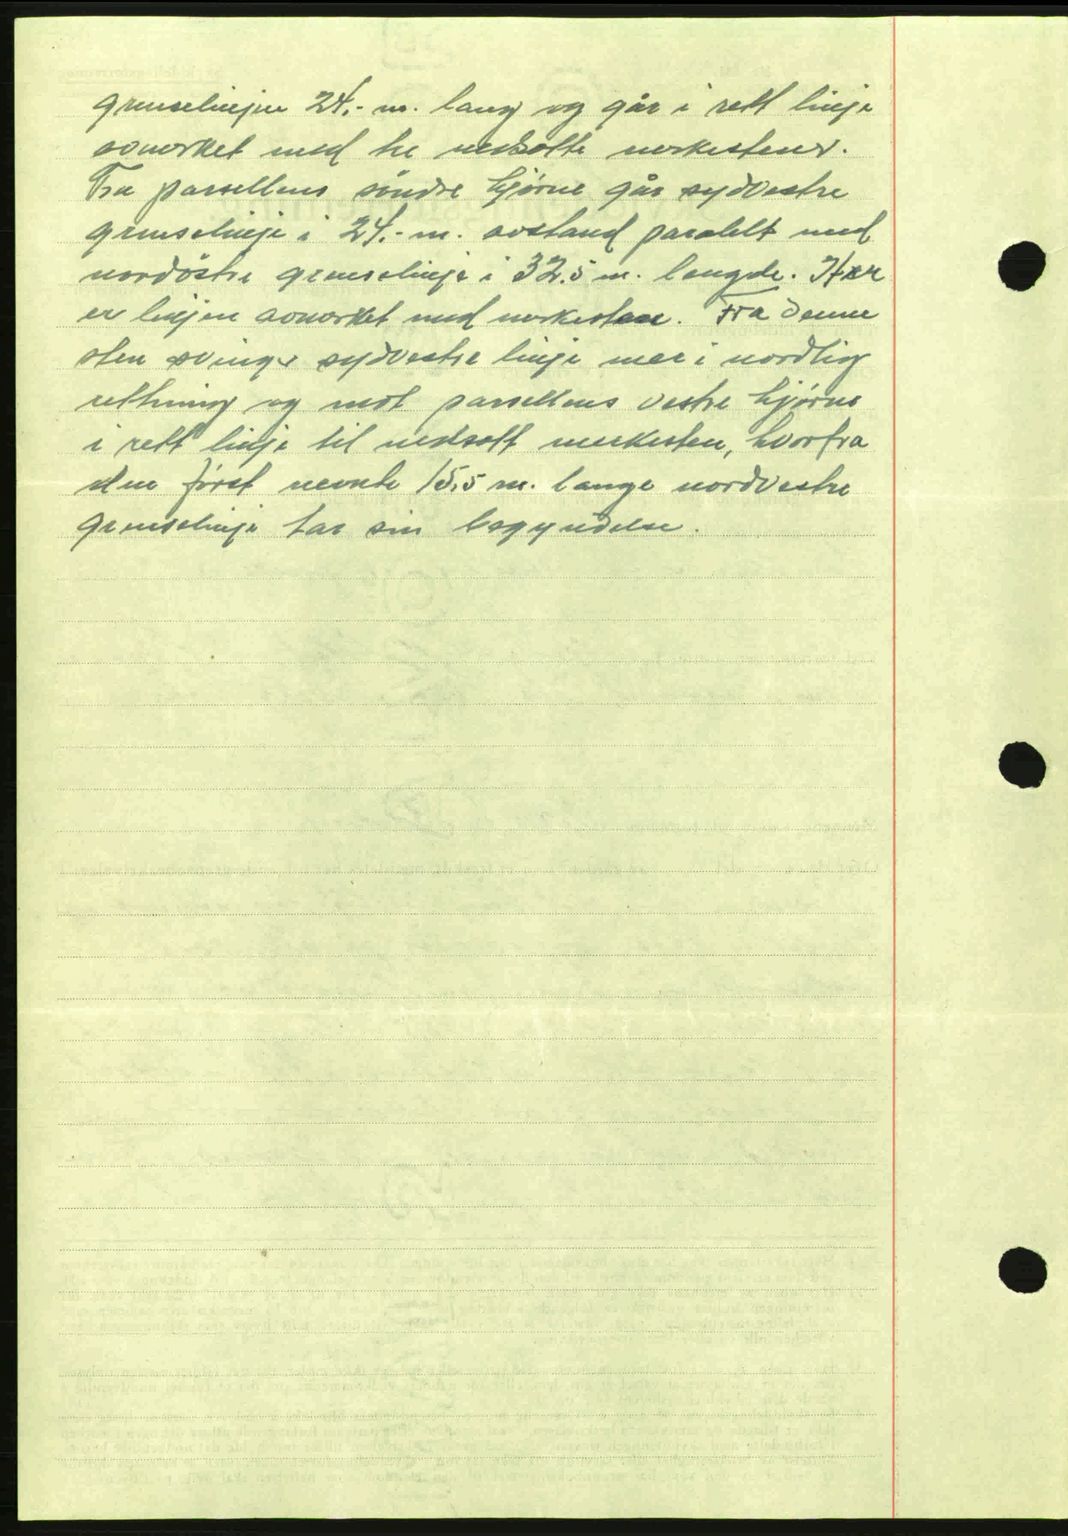 grenselinjen 24,- m. lang og går i rett linje
avmerket med tre nedsatte merkestener.
Fra parsellens søndre hjørne går sydvestre
grenselinje i 24,- m. avstand paralelt med
nordöstre grenselinje i 32,5 m. lengde. Her
er linjen avmerket med merkesten. Fra denne
sten svinger sydvestre linje mer i nordlig
rettning og mot parsellens vestre hjørne
i rett linje til nedsatt merkesten, hvorfra
den først nevnte 15,5 m. lange nordvestre
grenselinje tar sin begyndelse.